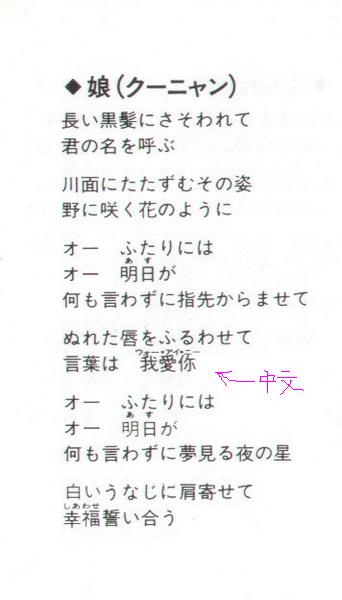 ◆娘(クーニャン)
長い黒髪にさそわれて
君の名を呼ぶ
川面にたたずむその姿
野に咲く花のように
オー ふたりには
あす
オー 明日が
何も言わずに指先からませて
ぬれた唇をふるわせて
ウォーアイニー
言葉は 我愛你
←中文
オー ふたりには
あす
オー 明日が
何も言わずに夢見る夜の星
白いうなじに肩寄せて
しあわせ
幸福誓い合う